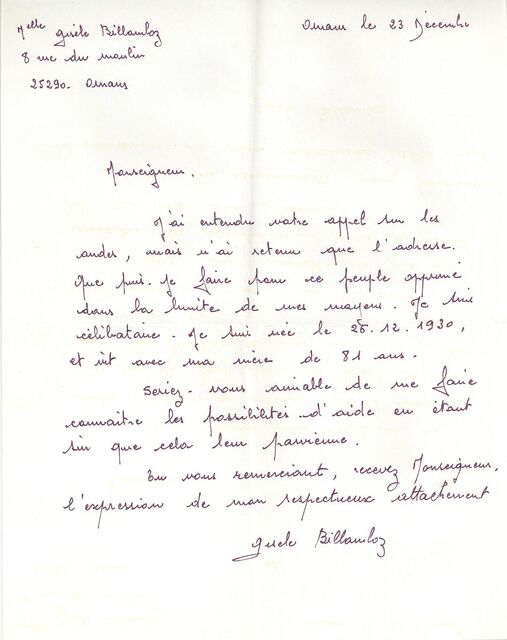 Melle Gisèle Billamboz
8 rue du moulin
25290 - Ornans
Ornans le 23 Décembre
Monseigneur,
J'ai entendu votre appel sur les
ondes, mais n'ai retenu que l'adresse.
Que puis-je faire pour ce peuple opprimé
dans la limite de mes moyens. Je suis
célibataire. Je suis née le 26.12.1930,
et vit avec ma mère de 81 ans.
Seriez-vous aimable de me faire
connaître les possibilités d'aide en étant
sûr que cela leur parvienne.
En vous remerciant, recevez Monseigneur,
l'expression de mon respectueux attachement
Gisèle Billamboz